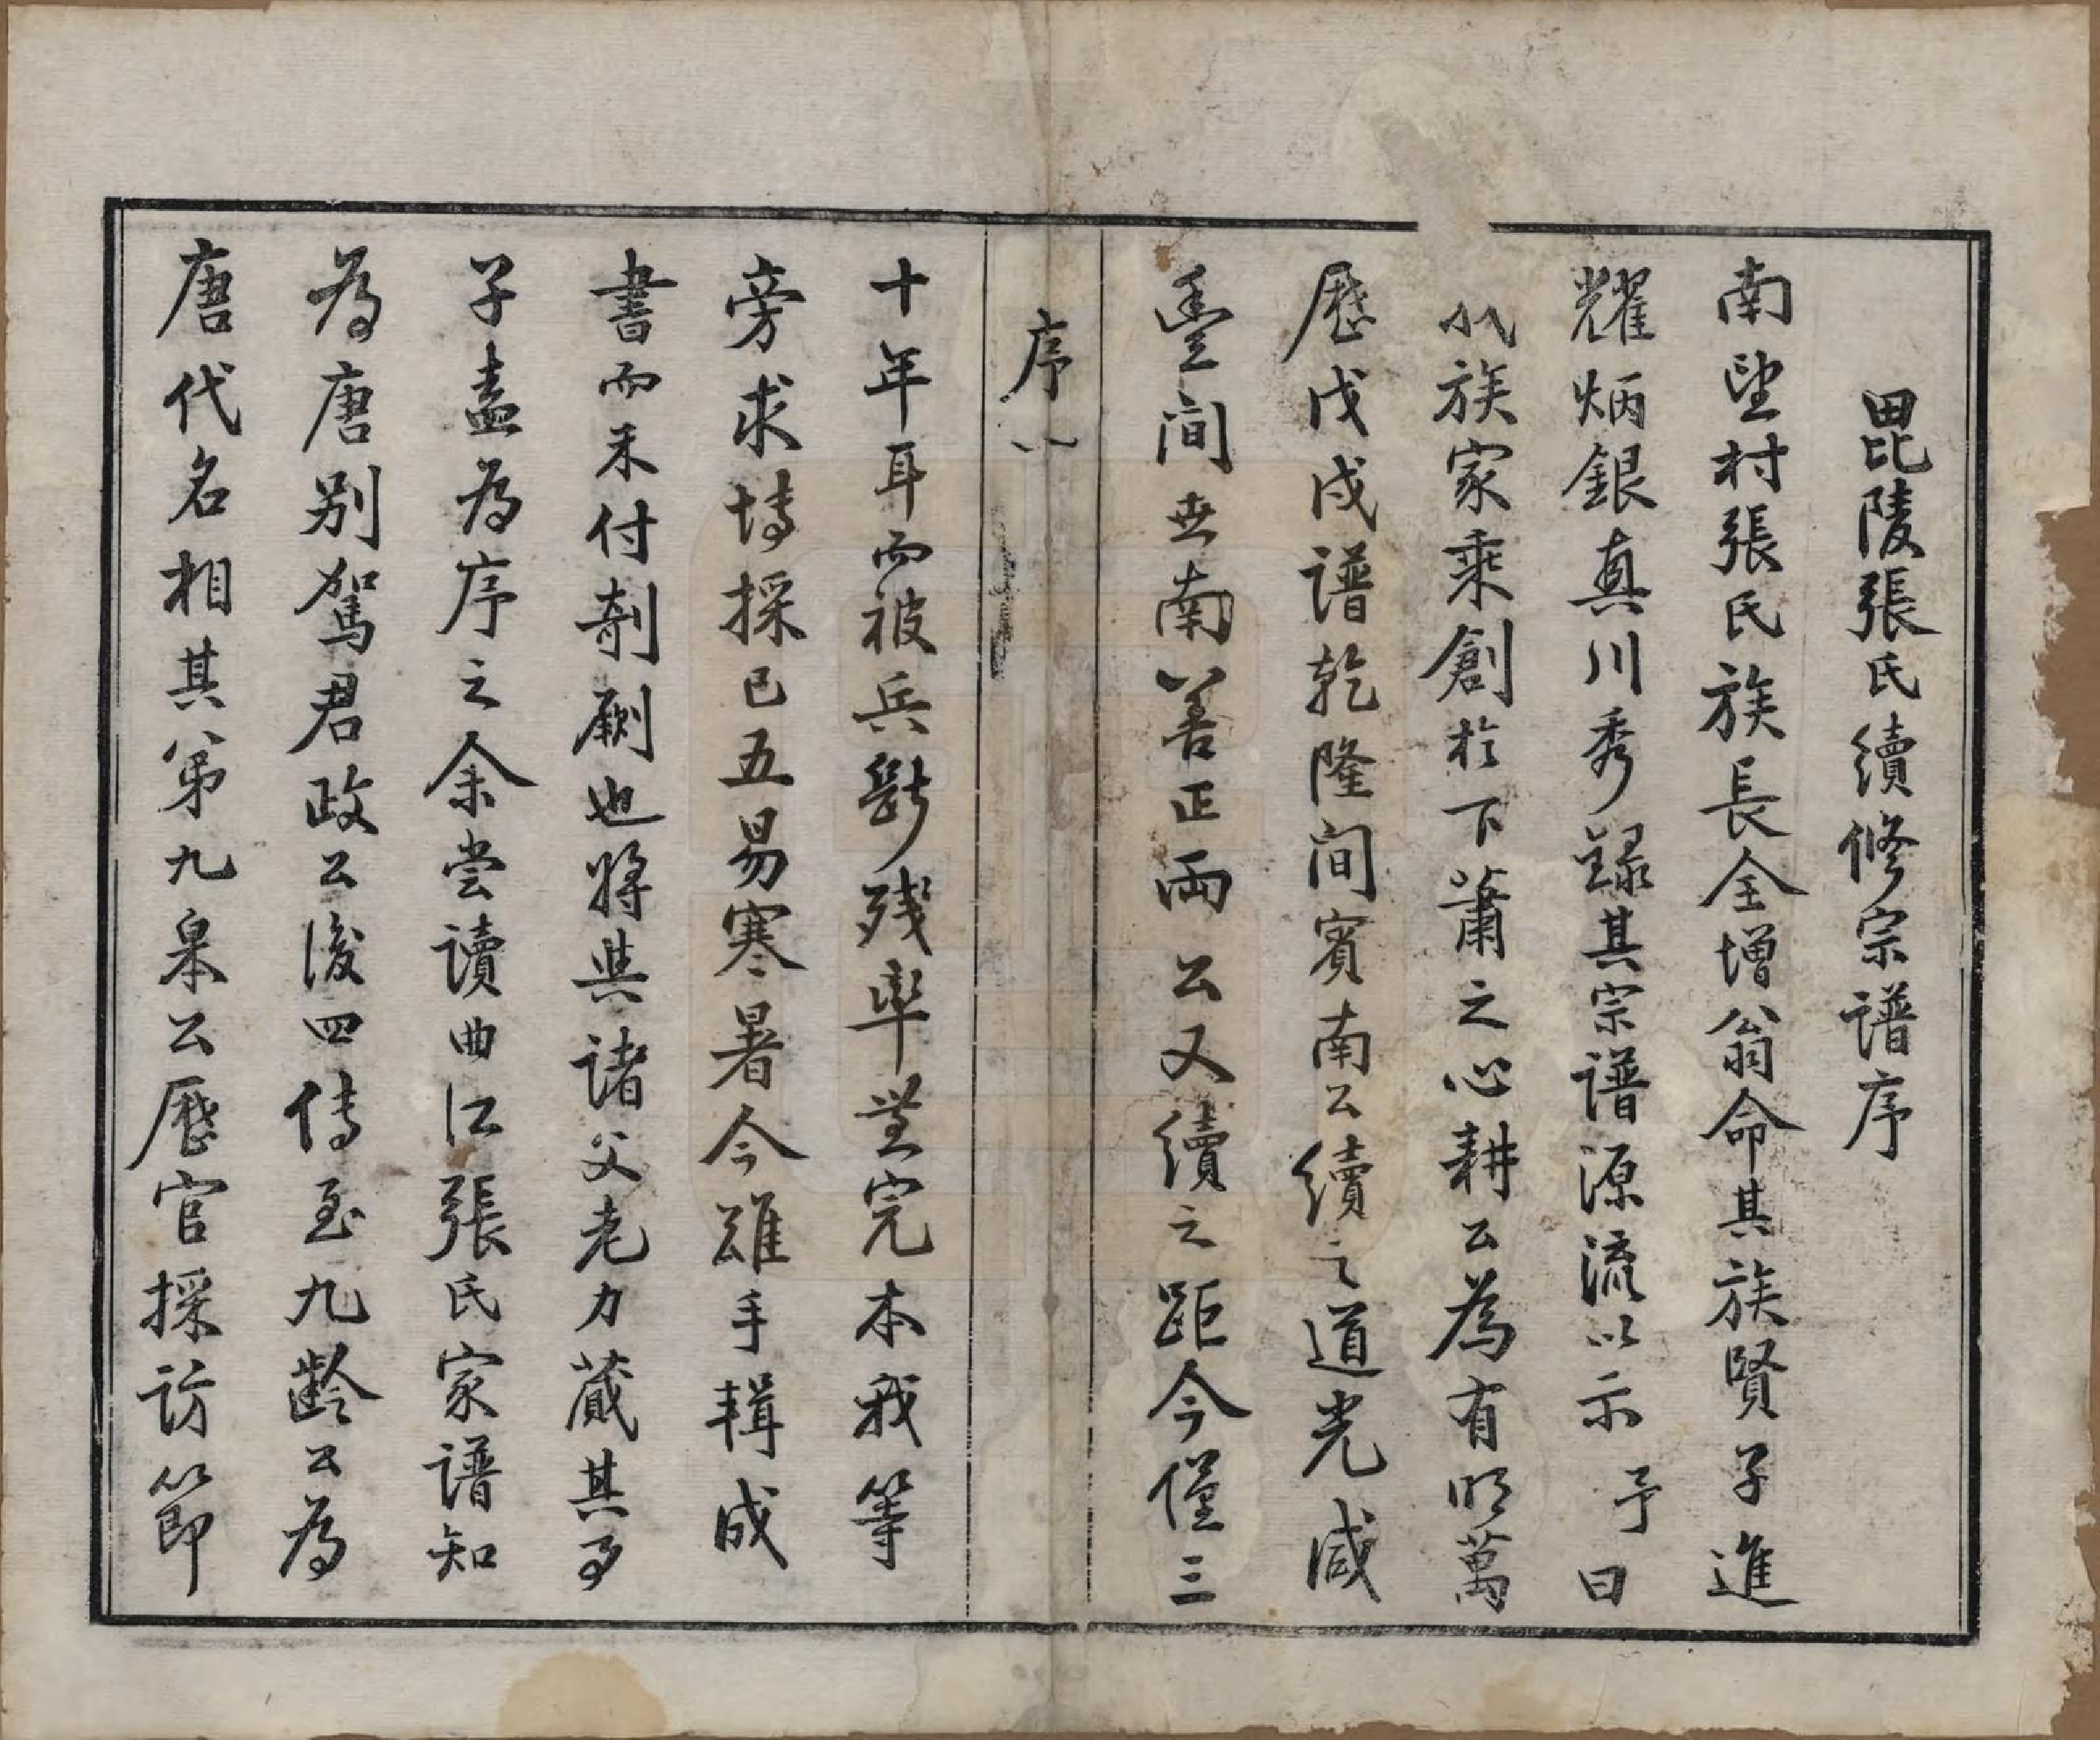 毘陵張氏續修宗譜序
南望村張氏族長全增翁命其族賢子進
耀炳銀真川秀録其宗譜源流以示予曰
我族家乘創於下蕭之心耕公為有明萬
歷戊戌譜乾隆间賓南公續之道光咸
豐间廿南善正兩公又續之距今僅三
序 八
十年耳而被兵燬殘率無完本我等
旁求博採已五易寒暑今雖手輯成
書而未付剞劂也將與諸父老力蕆其事
子盍為序之余嘗讀曲江張氏家譜知
為唐别駕君政公後四傳至九齡公為
唐代名相其第九皋公歷官採訪節